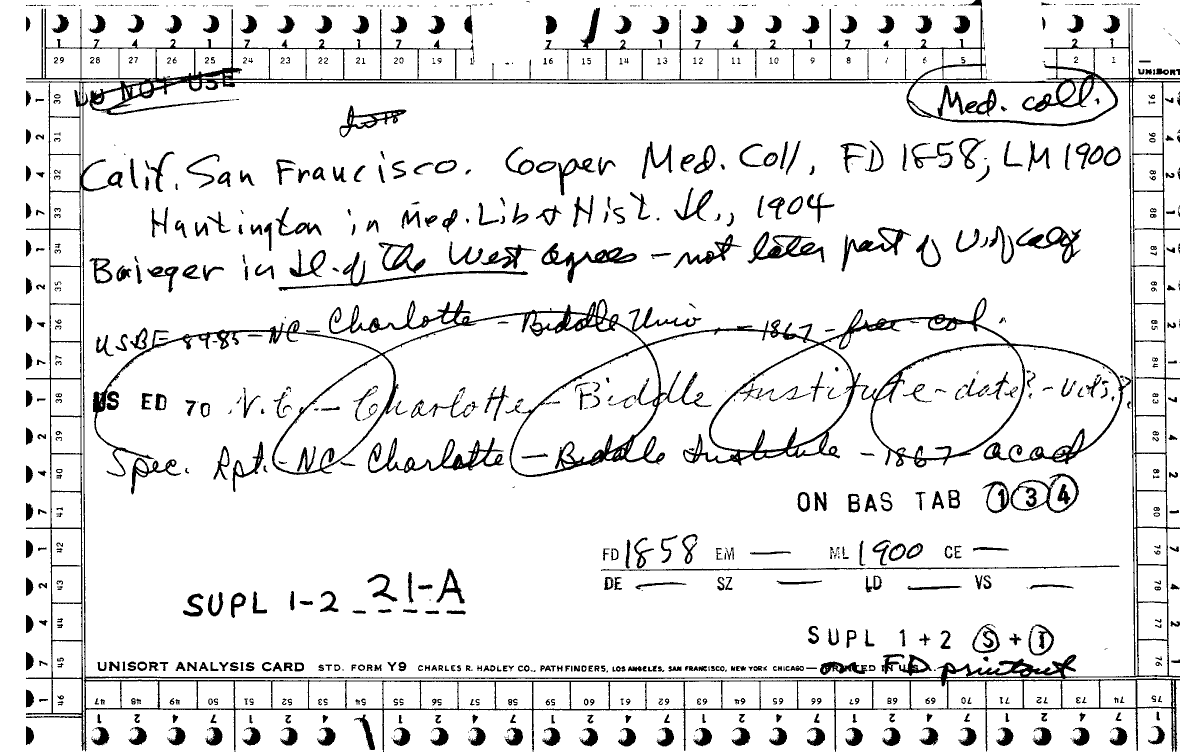 7 4 2 1 7 4 2 1 7 4 7 4 2 1 7 4 2 1 7 4 2 1
29 28 27 26 25 24 23 22 21 20 19 18 16 15 14 13 12 11 10 9 8 7 6 5 2 1
UNISORT
DO NOT USE
Med. coll.
Calif. San Francisco. Cooper Med. Coll, FD 1858; LM 1900
Huntington in Med. Lib & Hist. Jl., 1904
in Jl. of the West agrees - not later part of U. of Calif
USBE 8985 - NC - Charlotte - Biddle Univ. - 1867 - free - col.
US ED 70 N.C. - Charlotte - Biddle Institute - date? - vols?
Spec. Rpt. - NC - Charlotte - Biddle Institute - 1867 - acad
ON BAS TAB 1 3 4
FD 1858 EM — ML 1900 CE —
DE — SZ — LD — VS —
SUPL 1-2 21-A
SUPL 1 + 2 S + I
UNISORT ANALYSIS CARD STD. FORM Y9 CHARLES R. HADLEY CO., PATHFINDERS, LOS ANGELES, SAN FRANCISCO, NEW YORK CHICAGO — PRINTED IN U.S.A.
on FD printout
47 48 49 50 51 52 53 54 55 56 57 58 59 60 61 62 63 64 65 66 67 68 69 70 71 72 73 74 75